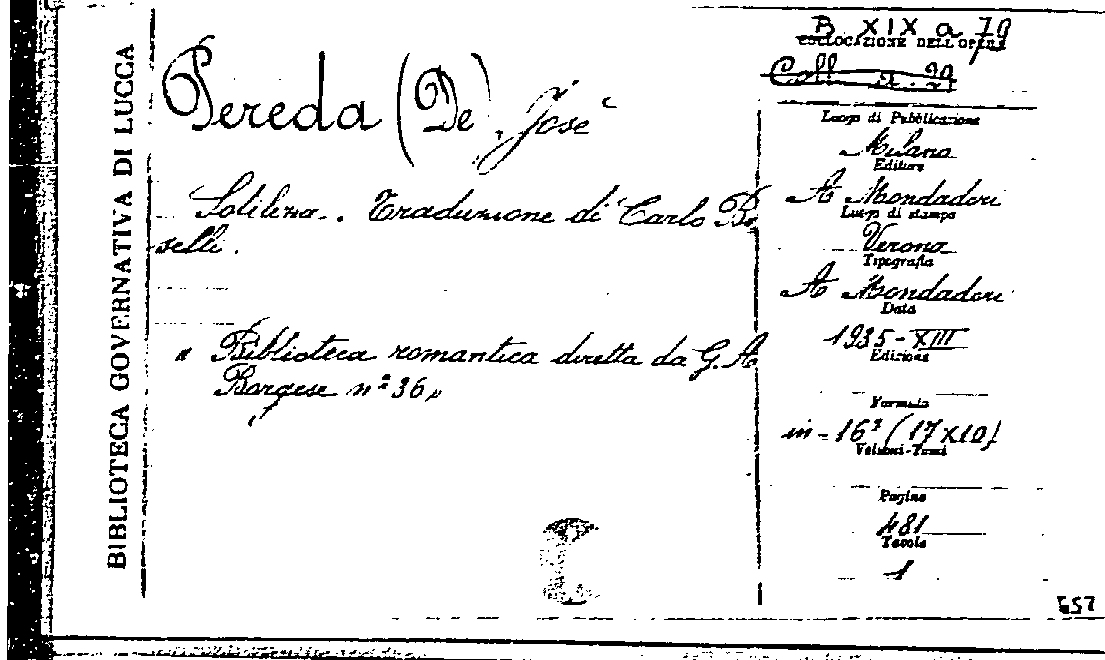 BIBLIOTECA GOVERNATIVA DI LUCCA
Pereda (De) José
Sotileza.. Traduzione di Carlo Bo
selli.
" Biblioteca romantica diretta da G. A
Borgese n° 36 "
B XIX a 79
COLLOCAZIONE DELL'OPERA
Coll. 29
Luogo di Pubblicazione
Milano
Editore
A Mondadori
Luogo di stampa
Verona
Tipografia
A Mondadori
Data
1935-XIII
Edizione
Formato
in-16° (17x10)
Volumi-Tomi
Pagine
481
Tavole
1
557